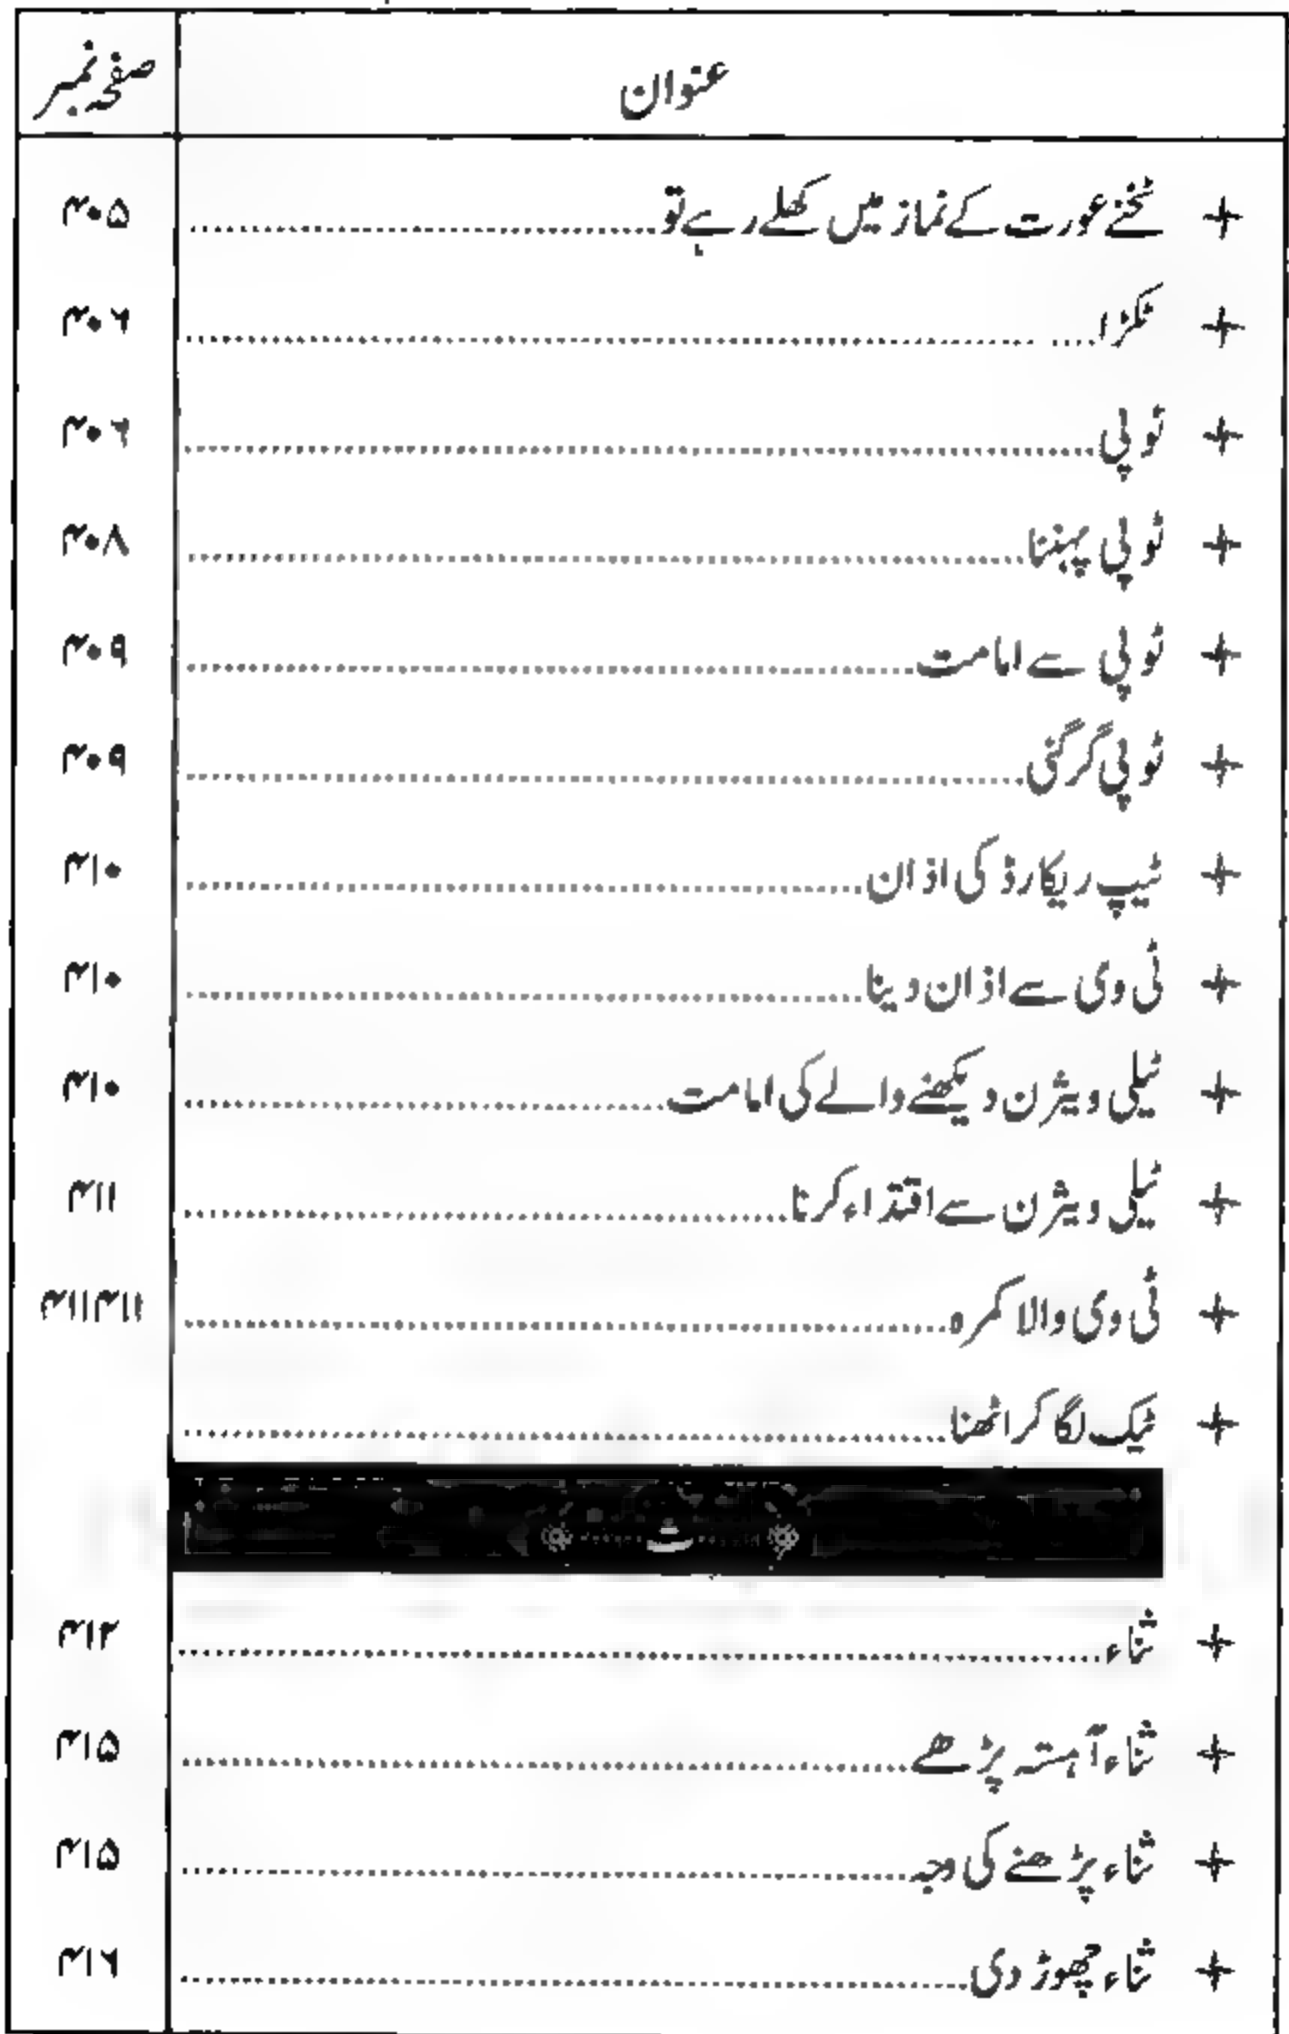 عنوان صفحہ نمبر
+ ٹخنے عورت کے نماز میں کھلے رہے تو ۴۰۵
+ ٹکڑا ۴۰۶
+ ٹوپی ۴۰۶
+ ٹوپی پہننا ۴۰۸
+ ٹوپی سے امامت ۴۰۹
+ ٹوپی گر گئی ۴۰۹
+ ٹیپ ریکارڈ کی اذان ۴۱۰
+ ٹی وی سے اذان دینا ۴۱۰
+ ٹیلی ویژن دیکھنے والے کی امامت ۴۱۰
+ ٹیلی ویژن سے اقتداء کرنا ۴۱۱
+ ٹی وی والا کمرہ ۴۱۱۴۱۱
+ ٹیک لگا کر اٹھنا
ث
+ ثناء ۴۱۲
+ ثناء آہستہ پڑھے ۴۱۵
+ ثناء پڑھنے کی وجہ ۴۱۵
+ ثناء چھوڑ دی ۴۱۶